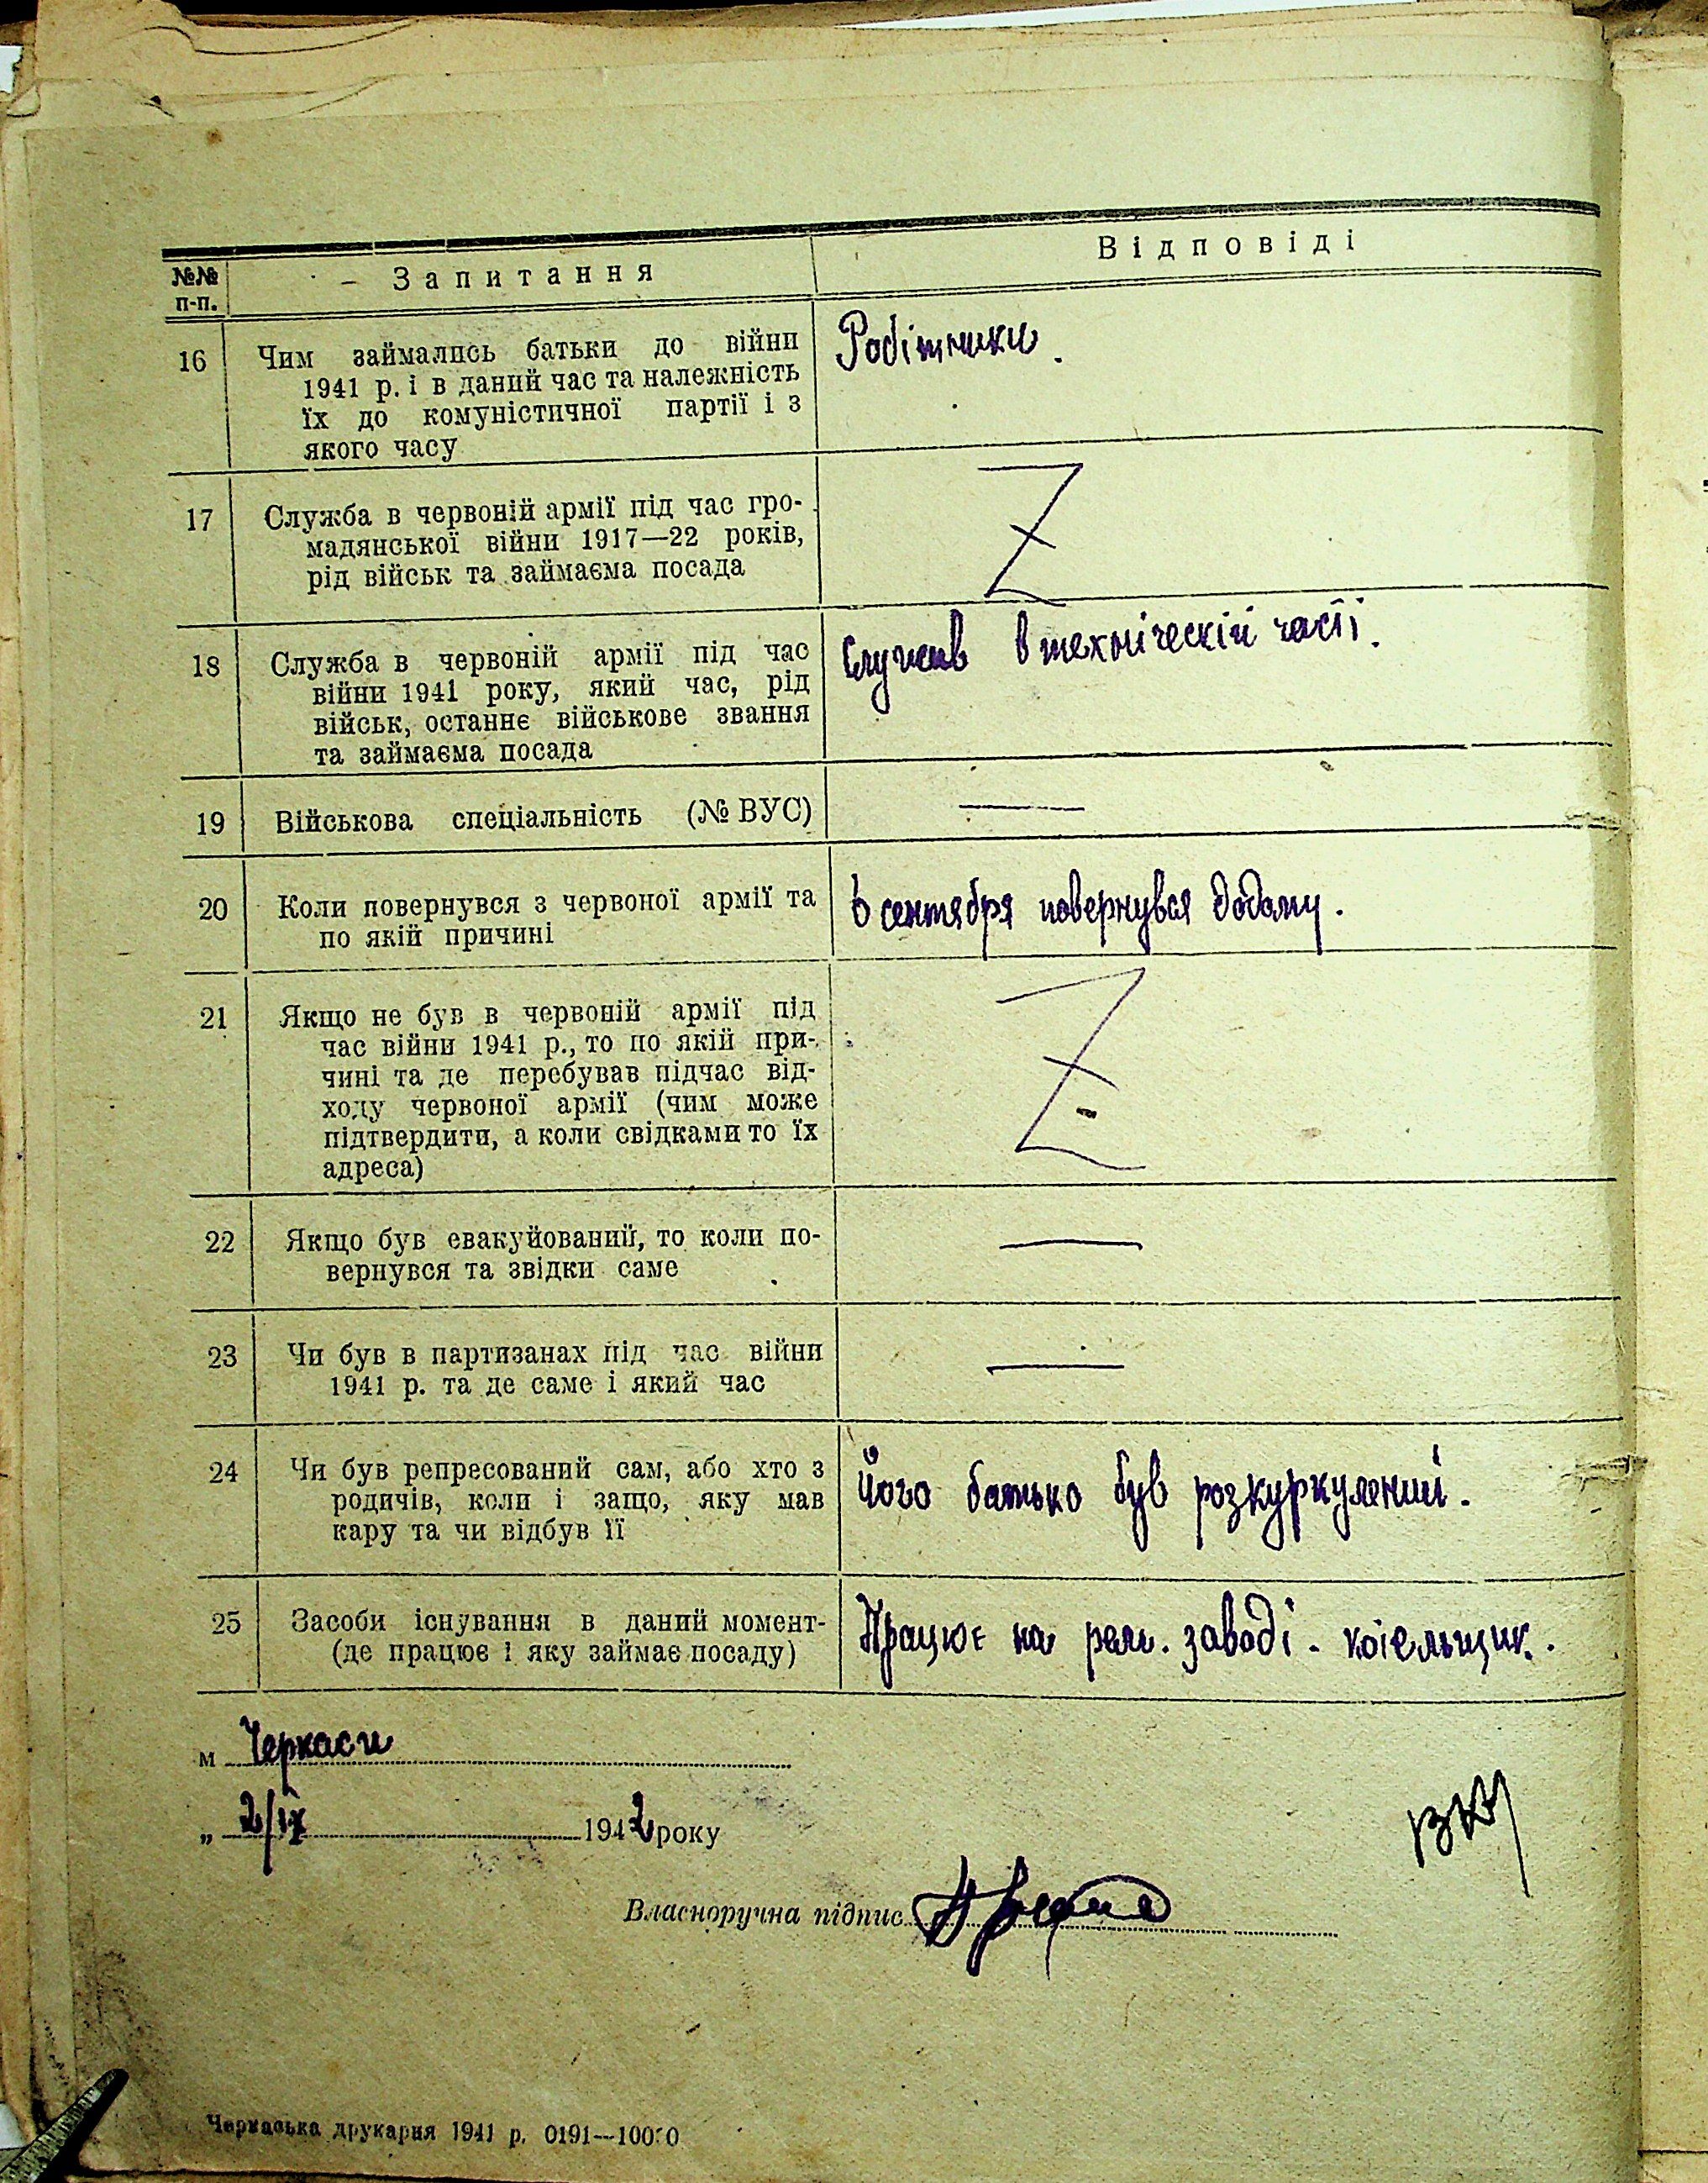 №№ п-п.
Запитання
Відповіді
16
Чим займались батьки до війни
1941 р. і в даний час та належність
їх до комуністичної партії і з
якого часу
Робітники.
17
Служба в червоній армії під час гро-
мадянської війни 1917—22 років,
рід військ та займаєма посада
18
Служба в червоній армії під час
війни 1941 року, який час, рід
військ, останнє військове звання
та займаєма посада
Служив в технической часті.
19
Військова спеціальність (№ ВУС)
—
20
Коли повернувся з червоної армії та
по якій причині
В сентября повернувся додому.
21
Якщо не був в червоній армії під
час війни 1941 р., то по якій при-
чині та де перебував підчас від-
ходу червоної армії (чим може
підтвердити, а коли свідками то їх
адреса)
22
Якщо був евакуйований, то коли по-
вернувся та звідки саме
—
23
Чи був в партизанах під час війни
1941 р. та де саме і який час
—
24
Чи був репресований сам, або хто з
родичів, коли і защо, яку мав
кару та чи відбув її
Його батько був розкуркулений.
25
Засоби існування в даний момент-
(де працює і яку займає посаду)
Працює на рем. заводі - котельщик.
м Черкаси
„ 2/IX 1942 року
Власноручна підпис
Черкаська друкарня 1941 р. 0191—10000